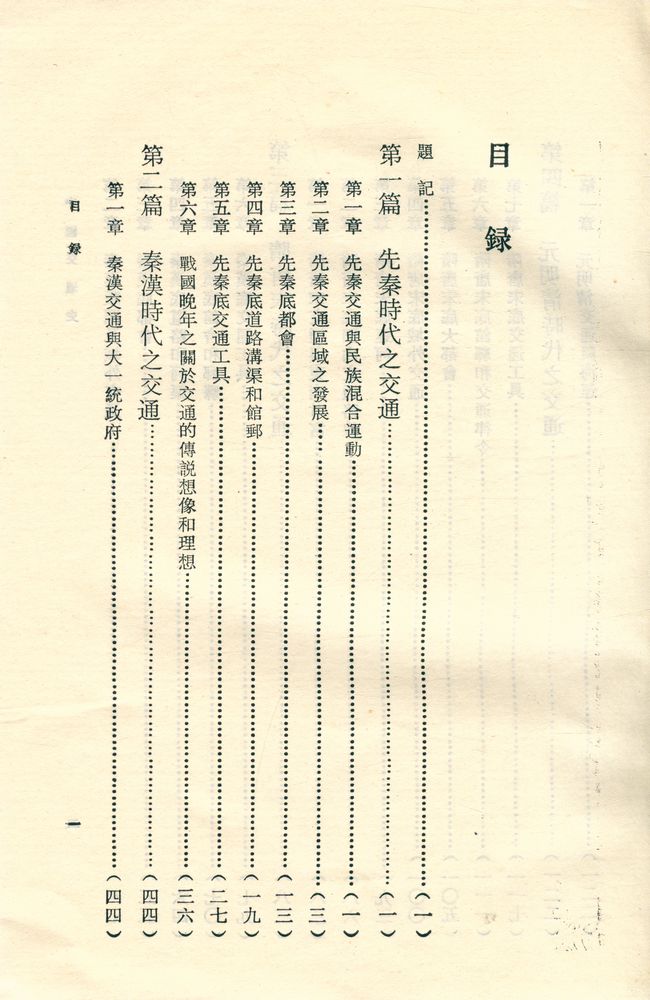 目録
題記……(一)
第一篇 先秦時代之交通……(一)
第一章 先秦交通與民族混合運動……(一)
第二章 先秦交通區域之發展……(三)
第三章 先秦底都會……(一三)
第四章 先秦底道路溝渠和館郵……(一九)
第五章 先秦底交通工具……(二七)
第六章 戰國晚年之關於交通的傳説想像和理想……(三六)
第二篇 秦漢時代之交通……(四四)
第一章 秦漢交通與大一統政府……(四四)
目録
一